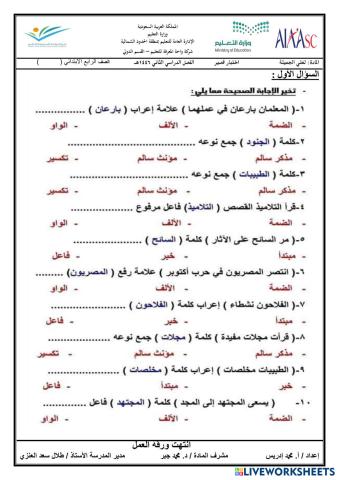 المملكة العربية السعودية
وزارة التعليم
الإدارة العامة للتعليم بمنطقة الحدود الشمالية
شركة واحة المعرفة للتعليم – القسم الدولي
وزارة التعليم
Ministry of Education
المادة: لغتي الجميلة
اختبار قصير
الفصل الدراسي الثاني ١٤٤٦هـ
الصف الرابع الابتدائي ( )
السؤال الأول :
- تخير الإجابة الصحيحة مما يلي:
١-( المعلمان بارعان في عملهما ) علامة إعراب ( بارعان ) ................
الضمة - الألف - الواو
٢-كلمة ( الجنود ) جمع نوعه ................
مذكر سالم - مؤنث سالم - تكسير
٣-كلمة ( الطبيبات ) جمع نوعه ................
مذكر سالم - مؤنث سالم - تكسير
٤-قرأ التلاميذ القصص ( التلاميذ) فاعل مرفوع ................
الضمة - الألف - الواو
٥-( مر السائح على الآثار ) كلمة ( السائح ) ................
مبتدأ - خبر - فاعل
٦-( انتصر المصريون في حرب أكتوبر ) علامة رفع ( المصريون) .........
الضمة - الألف - الواو
٧-( الفلاحون نشطاء ) إعراب كلمة ( الفلاحون ) ................
مبتدأ - خبر - فاعل
٨-( قرأت مجلات مفيدة ) كلمة ( مجلات ) جمع نوعه ................
مذكر سالم - مؤنث سالم - تكسير
٩-( الطبيبات مخلصات ) إعراب كلمة ( مخلصات ) ................
خبر - مبتدأ - فاعل
١٠- ( يسعى المجتهد إلى المجد ) كلمة ( المجتهد ) فاعل ............
الضمة - الألف - الواو
انتهت ورقة العمل
إعداد / أ. محمد إدريس
مشرف المادة / د. محمد جبر
مدير المدرسة الأستاذ / طلال سعد العنزي
LIVEWORKSHEETS